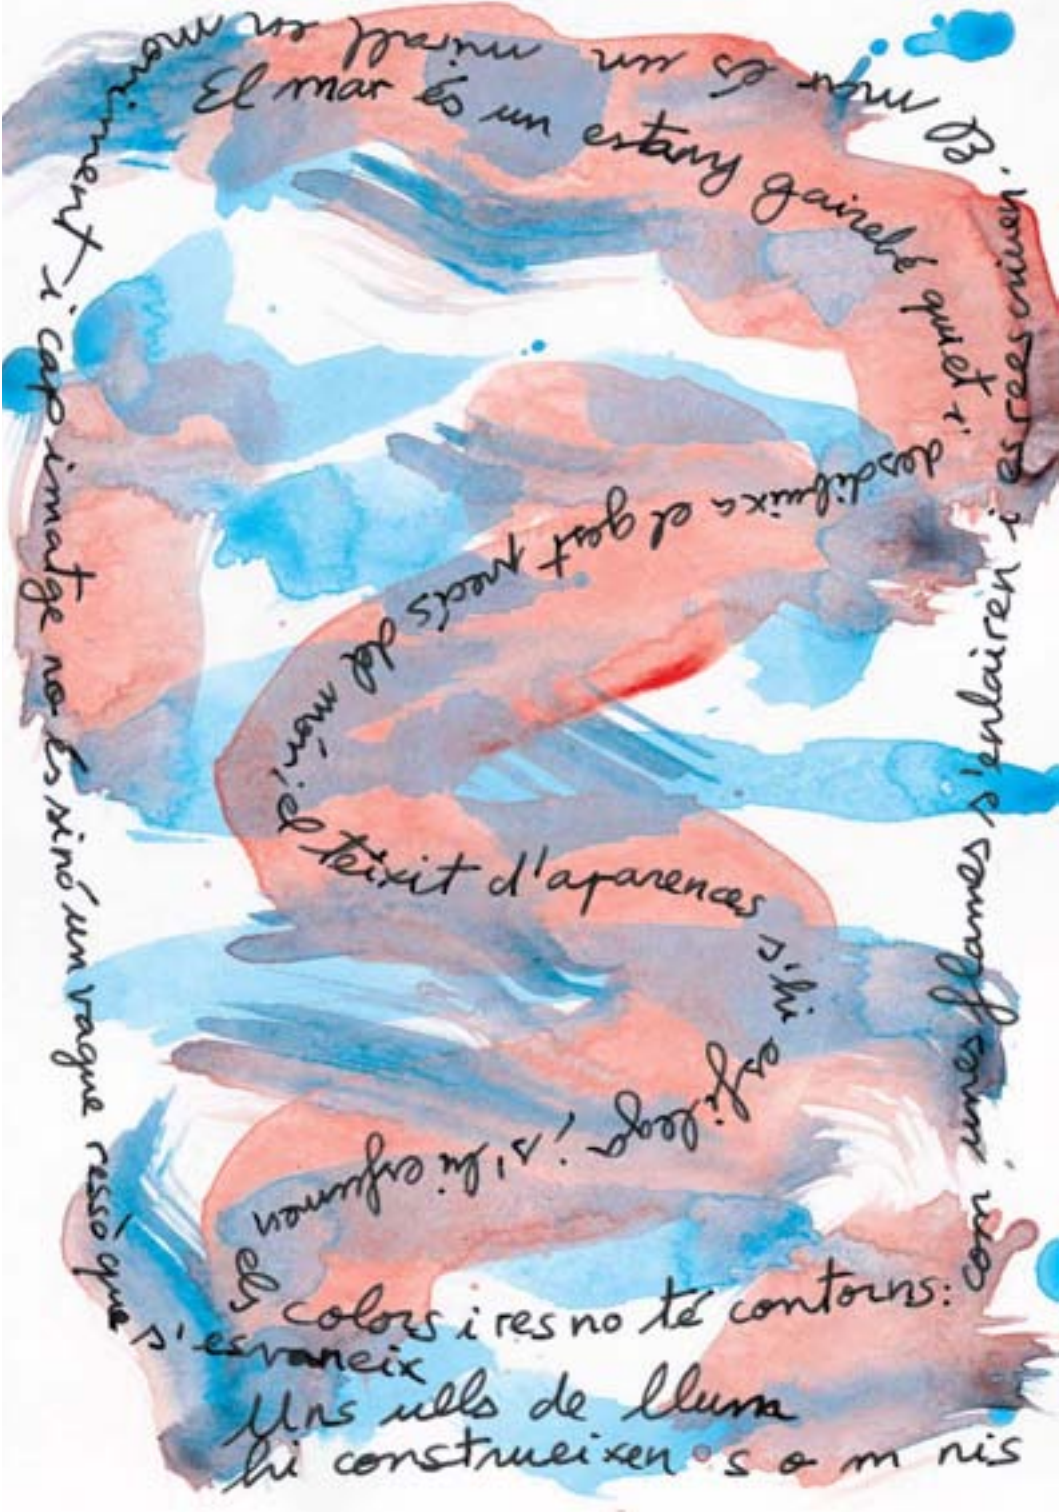 El mar és un estany gairebé quiet i
desdibuixa el gest precís del món i el
teixit d'aparences s'hi
esfilega, i s'hi esfumen
els colors i res no té contorns:
com unes flames s'enlairen i es reescriuen.
El mar és un mirall en
moviment i cap imatge no és sinó un vague ressò que
s'esvaneix
Uns ulls de llum
hi construeixen s o m nis